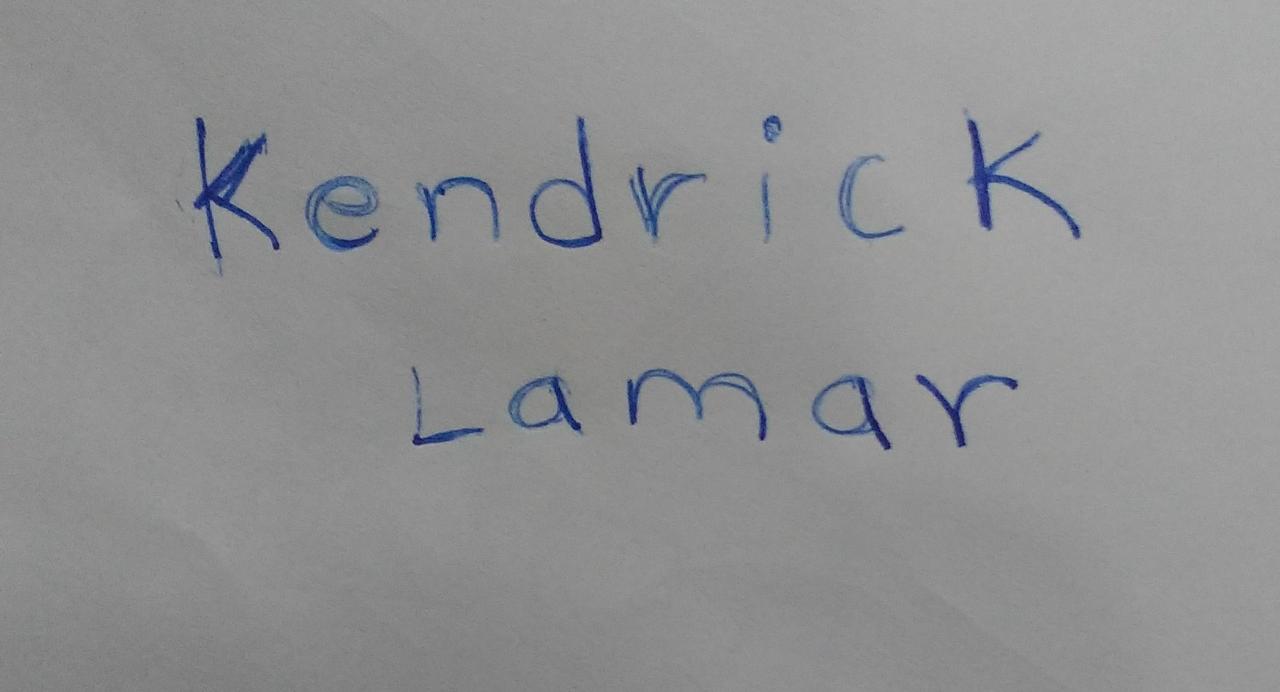 Kendrick
Lamar